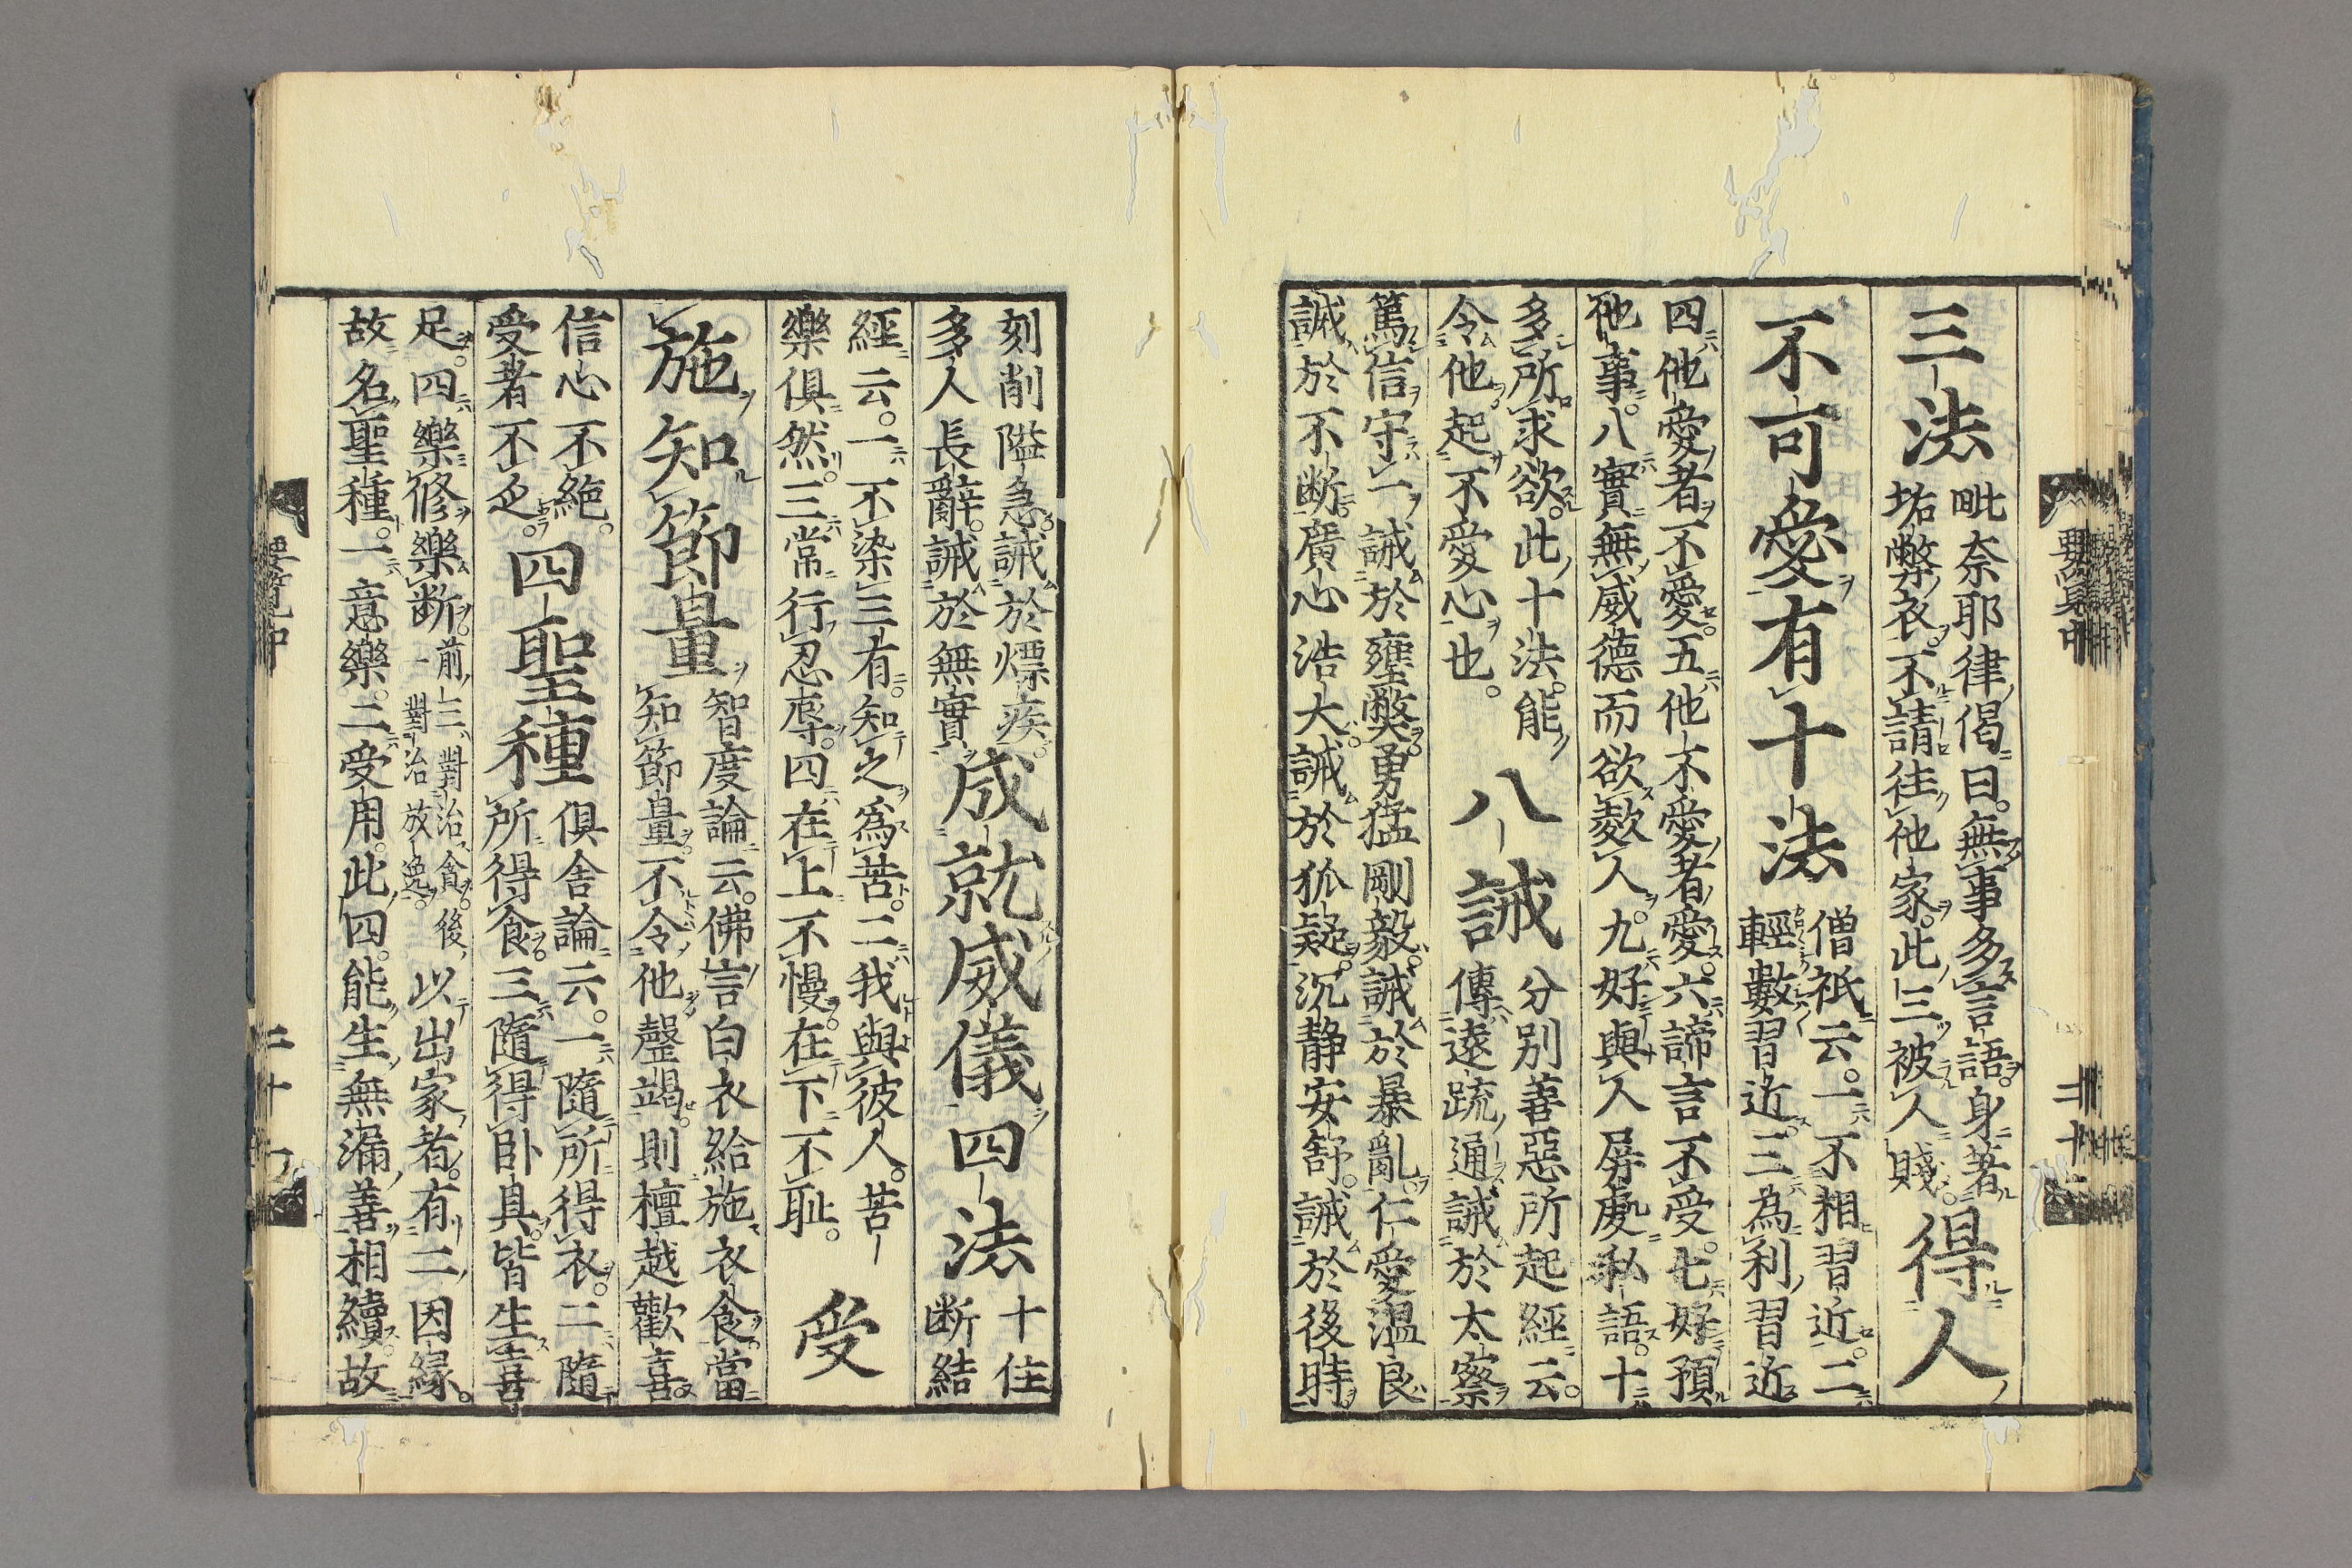 三法
毗奈耶律偈曰。無事多言語。身著
垢弊衣。不請往他家。此三被人賤。
得人
不可愛有十法
僧祇云。一不相習近。二
輕數習近。三為利習近
四他愛者不愛。五他不愛者愛。六諦言不受。七好預
他事。八實無威德而欲欺人。九好與人屏處私語。十
多所求欲。此十法。能
令他起不愛心也。
八誡
分别善惡所起經云。
傳逺䟽通誡於太察
篤信守一誡於壅弊。勇猛剛毅。誡於暴亂。仁愛溫良
誡於不断。廣心浩大。誡於狐疑。沉静安舒。誡於後時。
刻削隘急。誡於熛疾。
多人長辭。誡於無實。
成就威儀四法
十住
断結
經云。一不染三有。知之為苦。二我與彼人。苦
樂俱然。三常行忍辱。四在上不慢。在下不耻。
受
施知節量
智度論云。佛言白衣給施衣食。當
知節量。不令他罄竭。則檀越歡喜
信心不絶。
受者不乏。
四聖種
俱舍論云。一隨所得衣。二隨
所得食。三隨得卧具。皆生喜
足。四樂修樂断。前三對治貪。後一對治放逸。以出家者。有二因縁。
故名聖種。一意樂。二受用。此四。能生無漏善相續故